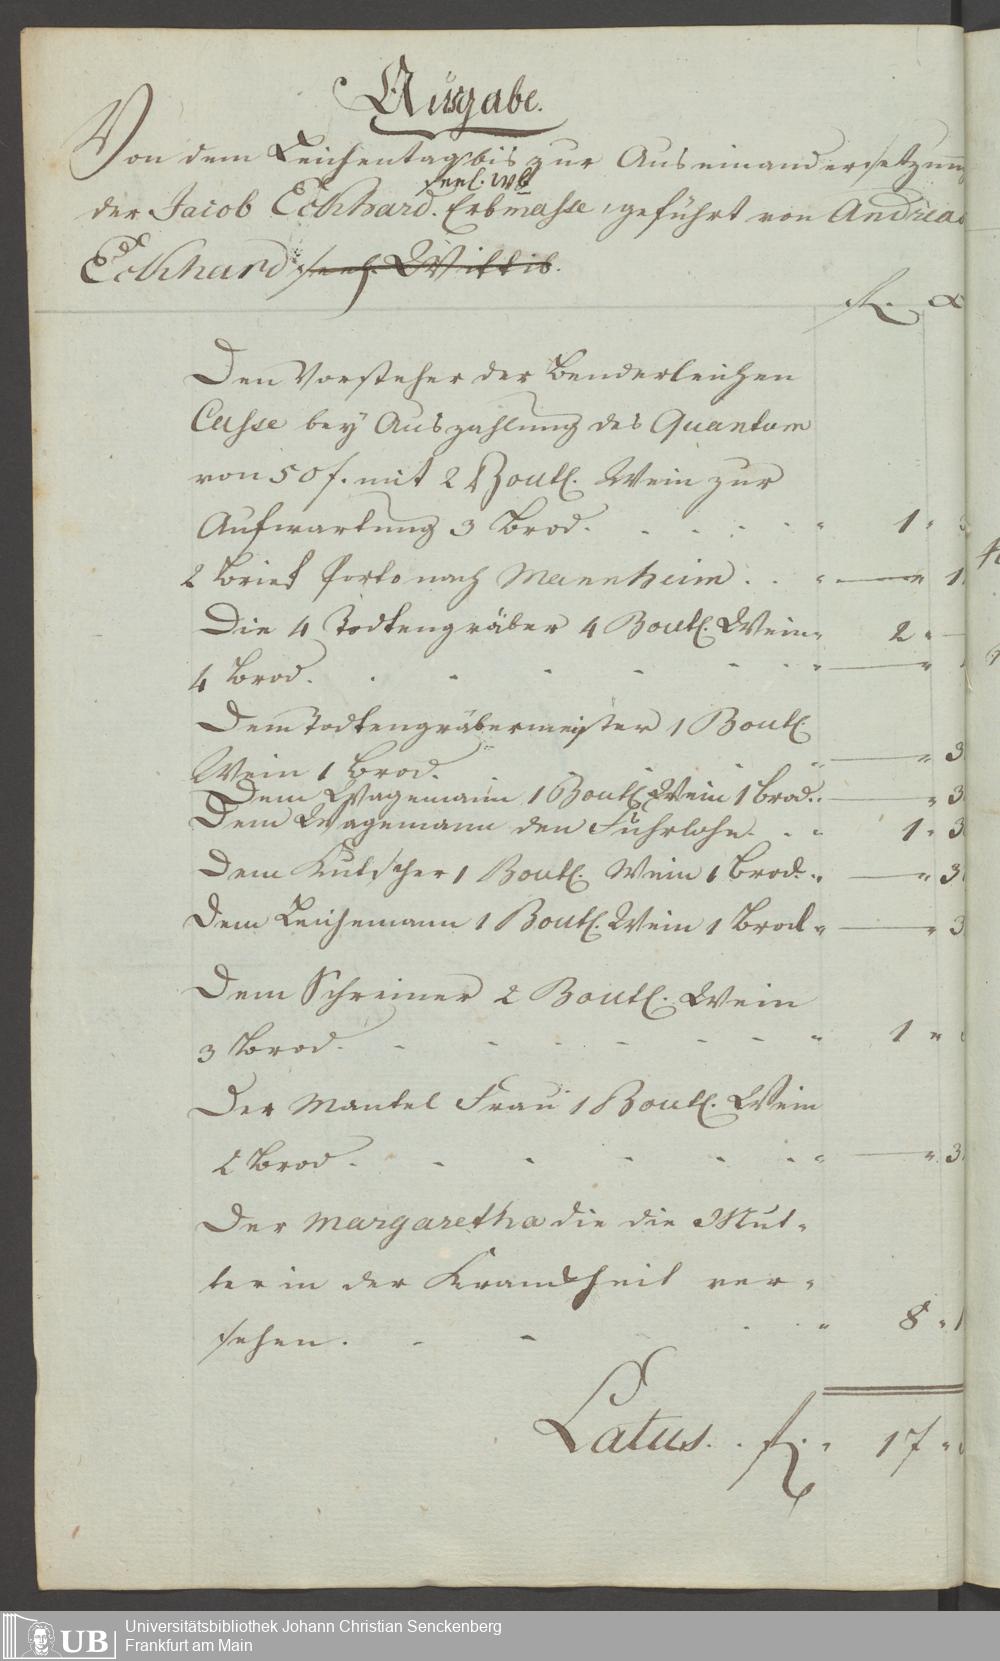 Ausgabe.
Von dem Leichentag bis zur Auseinandersetzung
seel. Wb
der Jacob Eckhard. Erbmasse, geführt von Andreas
Eckhard seel. Wittib.
fl. x
Den Vorsteher der Benderleichen
Casse bey Auszahlung des Quantum
von 50 f. mit 2 Boutl. Wein zur
Aufwartung 3 Brod. 1 "
2 Brief Porto nach Mannheim . . " — " 1
Die 4 Todtengräber 4 Boutl. Wein " 2 " —
4 Brod. " — "
Dem Todtengräbermeister 1 Boutl.
Wein 1 Brod. " — " 3
Dem Wagemann 1 Boutl. Wein 1 Brod. " — " 3
Dem Wagemann den Fuhrlohn . . " 1 " 3
Dem Kutscher 1 Boutl. Wein 1 Brod. " — " 3
Dem Leichemann 1 Boutl. Wein 1 Brod " — " 3
Dem Schreiner 2 Boutl. Wein
3 Brod. " 1 "
Der Mantel Frau 1 Boutl. Wein
Brod. " — " 3
Der Margaretha die die Mut-
ter in der Krankheit ver-
sehen. " 8 " 1
Latus. . fl. " 17 "
UB
Universitätsbibliothek Johann Christian Senckenberg
Frankfurt am Main